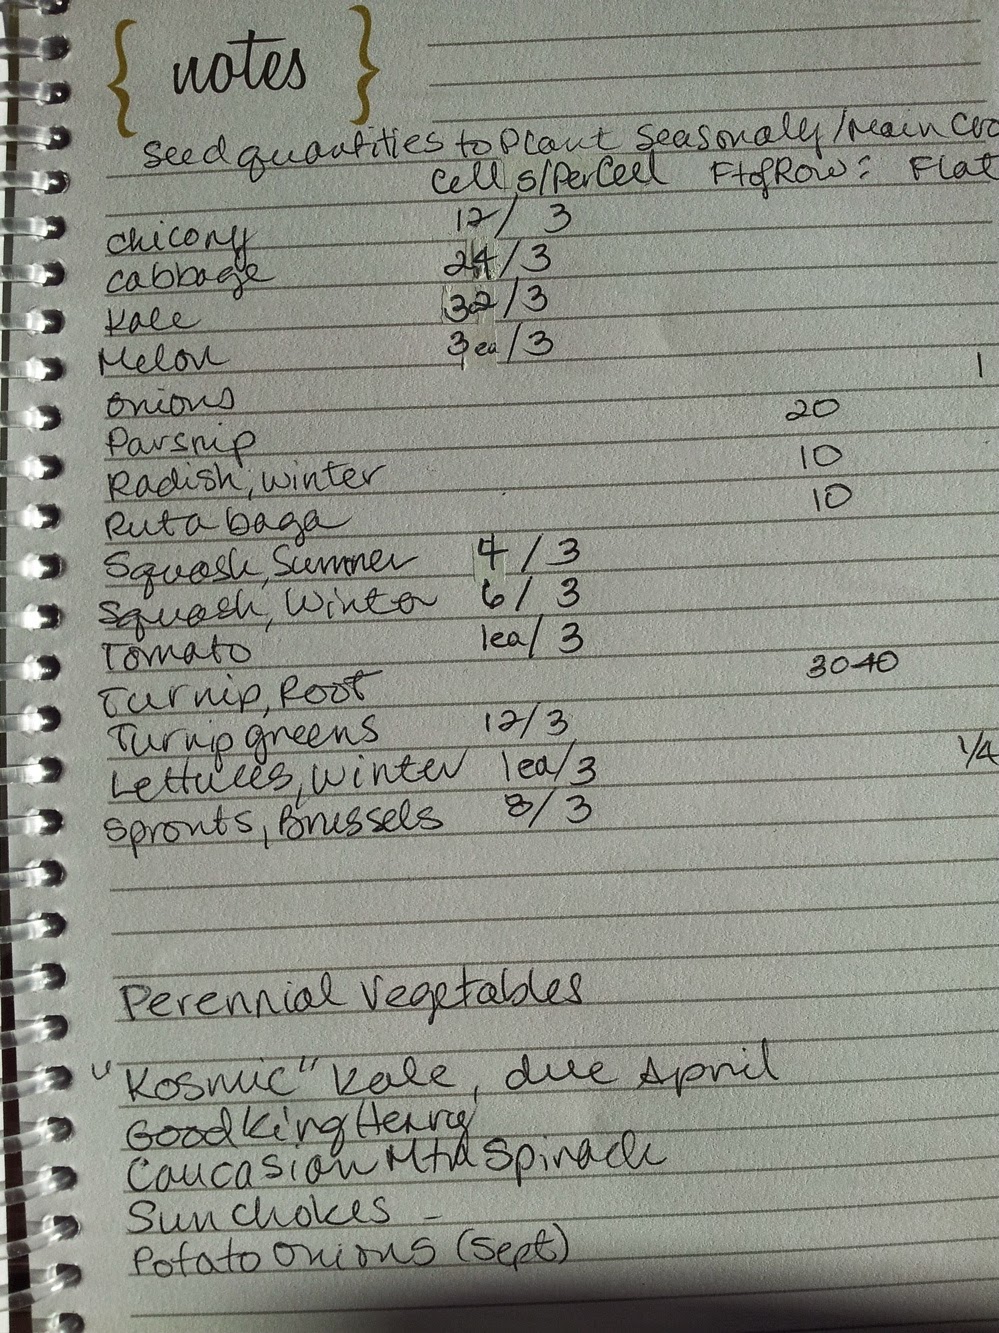 { notes }
Seed quantities to Plant Seasonaly/Main
Cells/PerCell FtofRow: Flat
Chicory 12/ 3
Cabbage 24/3
Kale 32/3
Melon 3ea/3
Onions 1
Parsnip 20
Radish, Winter 10
Rutabaga 10
Squash, Summer 4/3
Squash, Winter 6/ 3
Tomato 1ea/ 3
Turnip, Root 30-40
Turnip greens 12/3
Lettuces, Winter 1ea/3 1/4
Sprouts, Brussels 8/3
Perennial Vegetables
"Kosmic" Kale, due April
Good King Henry
Caucasian Mtn Spinach
Sun chokes -
Potato Onions (Sept)